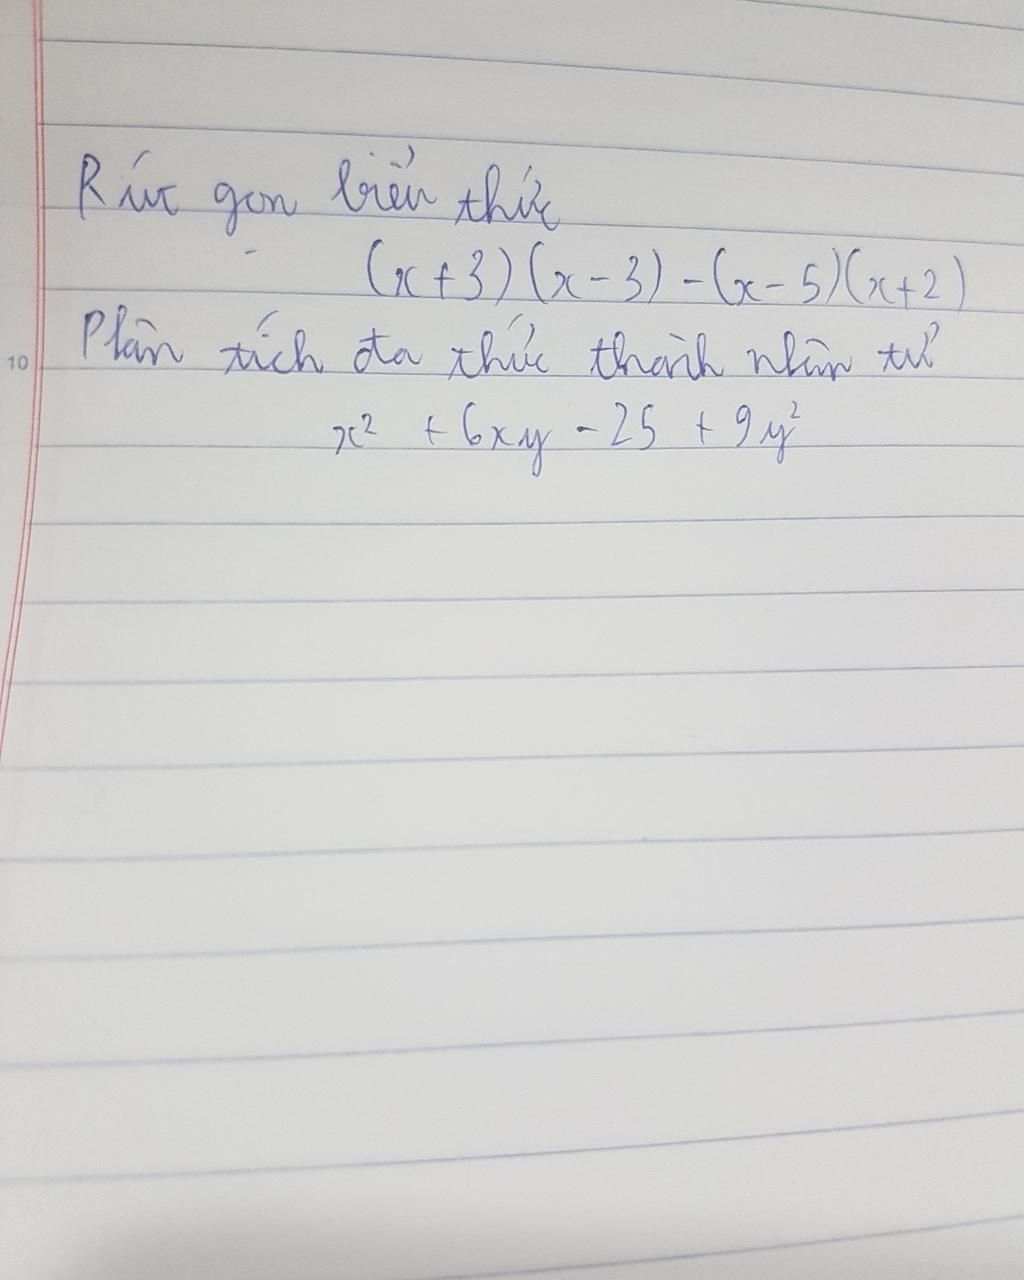 Rút gọn biểu thức
(x+3)(x-3)-(x-5)(x+2)
10
Phân tích đa thức thành nhân tử
x² + 6xy - 25 + 9y²